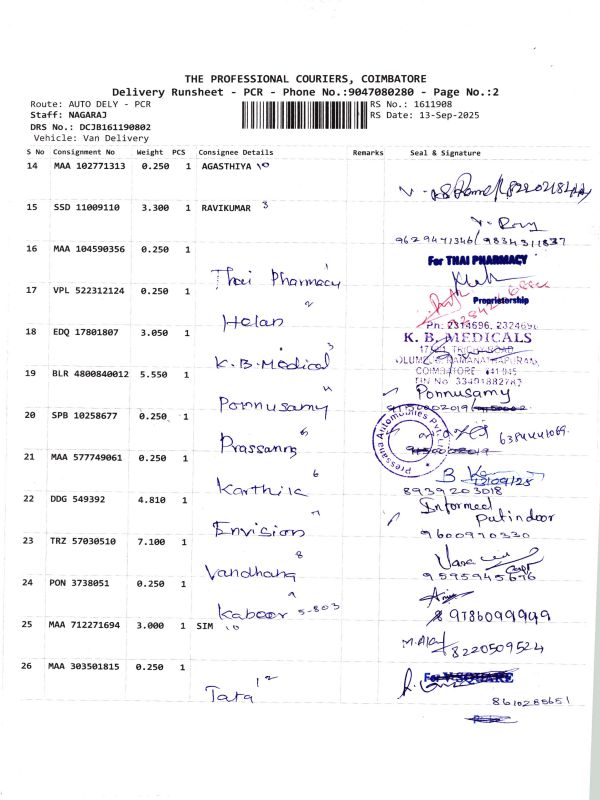 THE PROFESSIONAL COURIERS, COIMBATORE
Delivery Runsheet - PCR - Phone No.:9047080280 - Page No.:2
Route: AUTO DELY - PCR RS No.: 1611908
Staff: NAGARAJ RS Date: 13-Sep-2025
DRS No.: DCJB161190802
Vehicle: Van Delivery
S No Consignment No Weight PCS Consignee Details Remarks Seal & Signature
14 MAA 102771313 0.250 1 AGASTHIYA 10
15 SSD 11009110 3.300 1 RAVIKUMAR 3
16 MAA 104590356 0.250 1
For THAI PHARMACY
Thai Pharmacy
17 VPL 522312124 0.250 1
Proprietorship
2
Helan
18 EDQ 17801807 3.050 1
Ph: 2314696, 2324696
K. B. MEDICALS
3
K.B. Medical
19 BLR 4800840012 5.550 1
COIMBATORE - 641 045
Ponnusamy
Ponnusamy
20 SPB 10258677 0.250 1
Pressana Automobiles Pvt
5
Prassanna
21 MAA 577749061 0.250 1
6
Karthik
8939203018
22 DDG 549392 4.810 1
Informed
Envision
9600970330
23 TRZ 57030510 7.100 1
8
Vandhana
9595945696
24 PON 3738051 0.250 1
9
Kaboor 5-803
9786099949
25 MAA 712271694 3.000 1 SIM 10
8220509524
26 MAA 303501815 0.250 1
For V SQUARE
12
Tara
8610285651